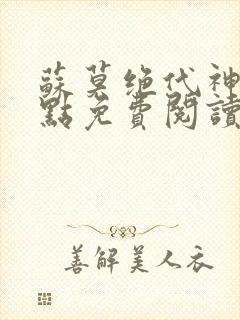 蘇莫绝代神
點免費閱讀
善解美人衣